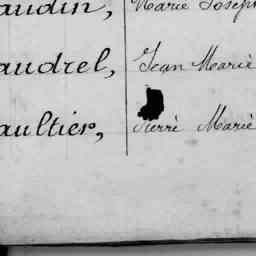 audin, Marie Joseph
audrel, Jean Marie
aultier, Pierre Marie